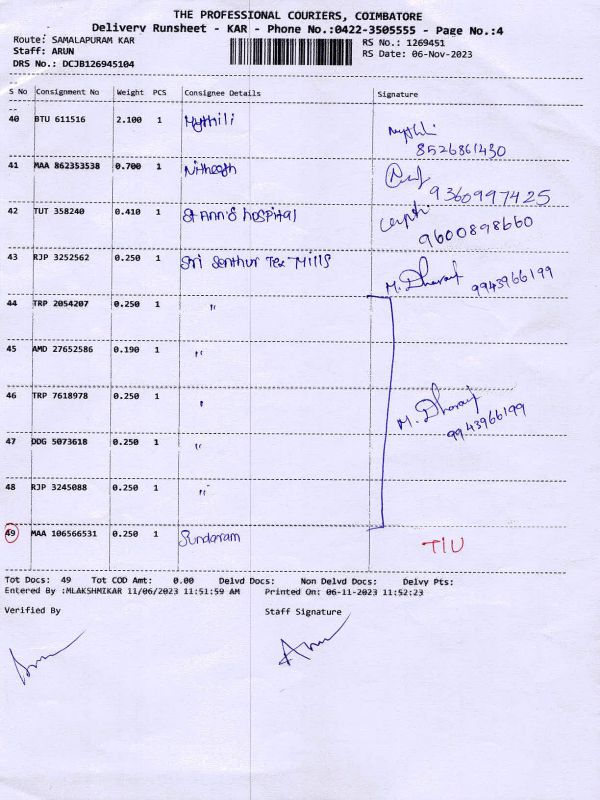 THE PROFESSIONAL COURIERS, COIMBATORE
Delivery Runsheet - KAR - Phone No.:0422-3505555 - Page No.:4
Route: SAMALAPURAM KAR RS No.: 1269451
Staff: ARUN RS Date: 06-Nov-2023
DRS No.: DCJB126945104
S No Consignment No Weight PCS Consignee Details Signature
40 BTU 611516 2.100 1 Mythili
8526861430
41 MAA 862353538 0.700 1 Nitheesh
9360997425
42 TUT 358240 0.410 1 St Ann'S hospital
9600898660
43 RJP 3252562 0.250 1 Sri Senthur Tex Mills M. Dharanf 9943966199
44 TRP 2054207 0.250 1 "
45 AMD 27652586 0.190 1 "
46 TRP 7618978 0.250 1 "
M. Dharanf
9943966199
47 DDG 5073618 0.250 1 "
48 RJP 3245088 0.250 1 "
49 MAA 106566531 0.250 1 Sundaram TIU
Tot Docs: 49 Tot COD Amt: 0.00 Delvd Docs: Non Delvd Docs: Delvy Pts:
Entered By :MLAKSHMIKAR 11/06/2023 11:51:59 AM Printed On: 06-11-2023 11:52:23
Verified By Staff Signature
Arun Arun